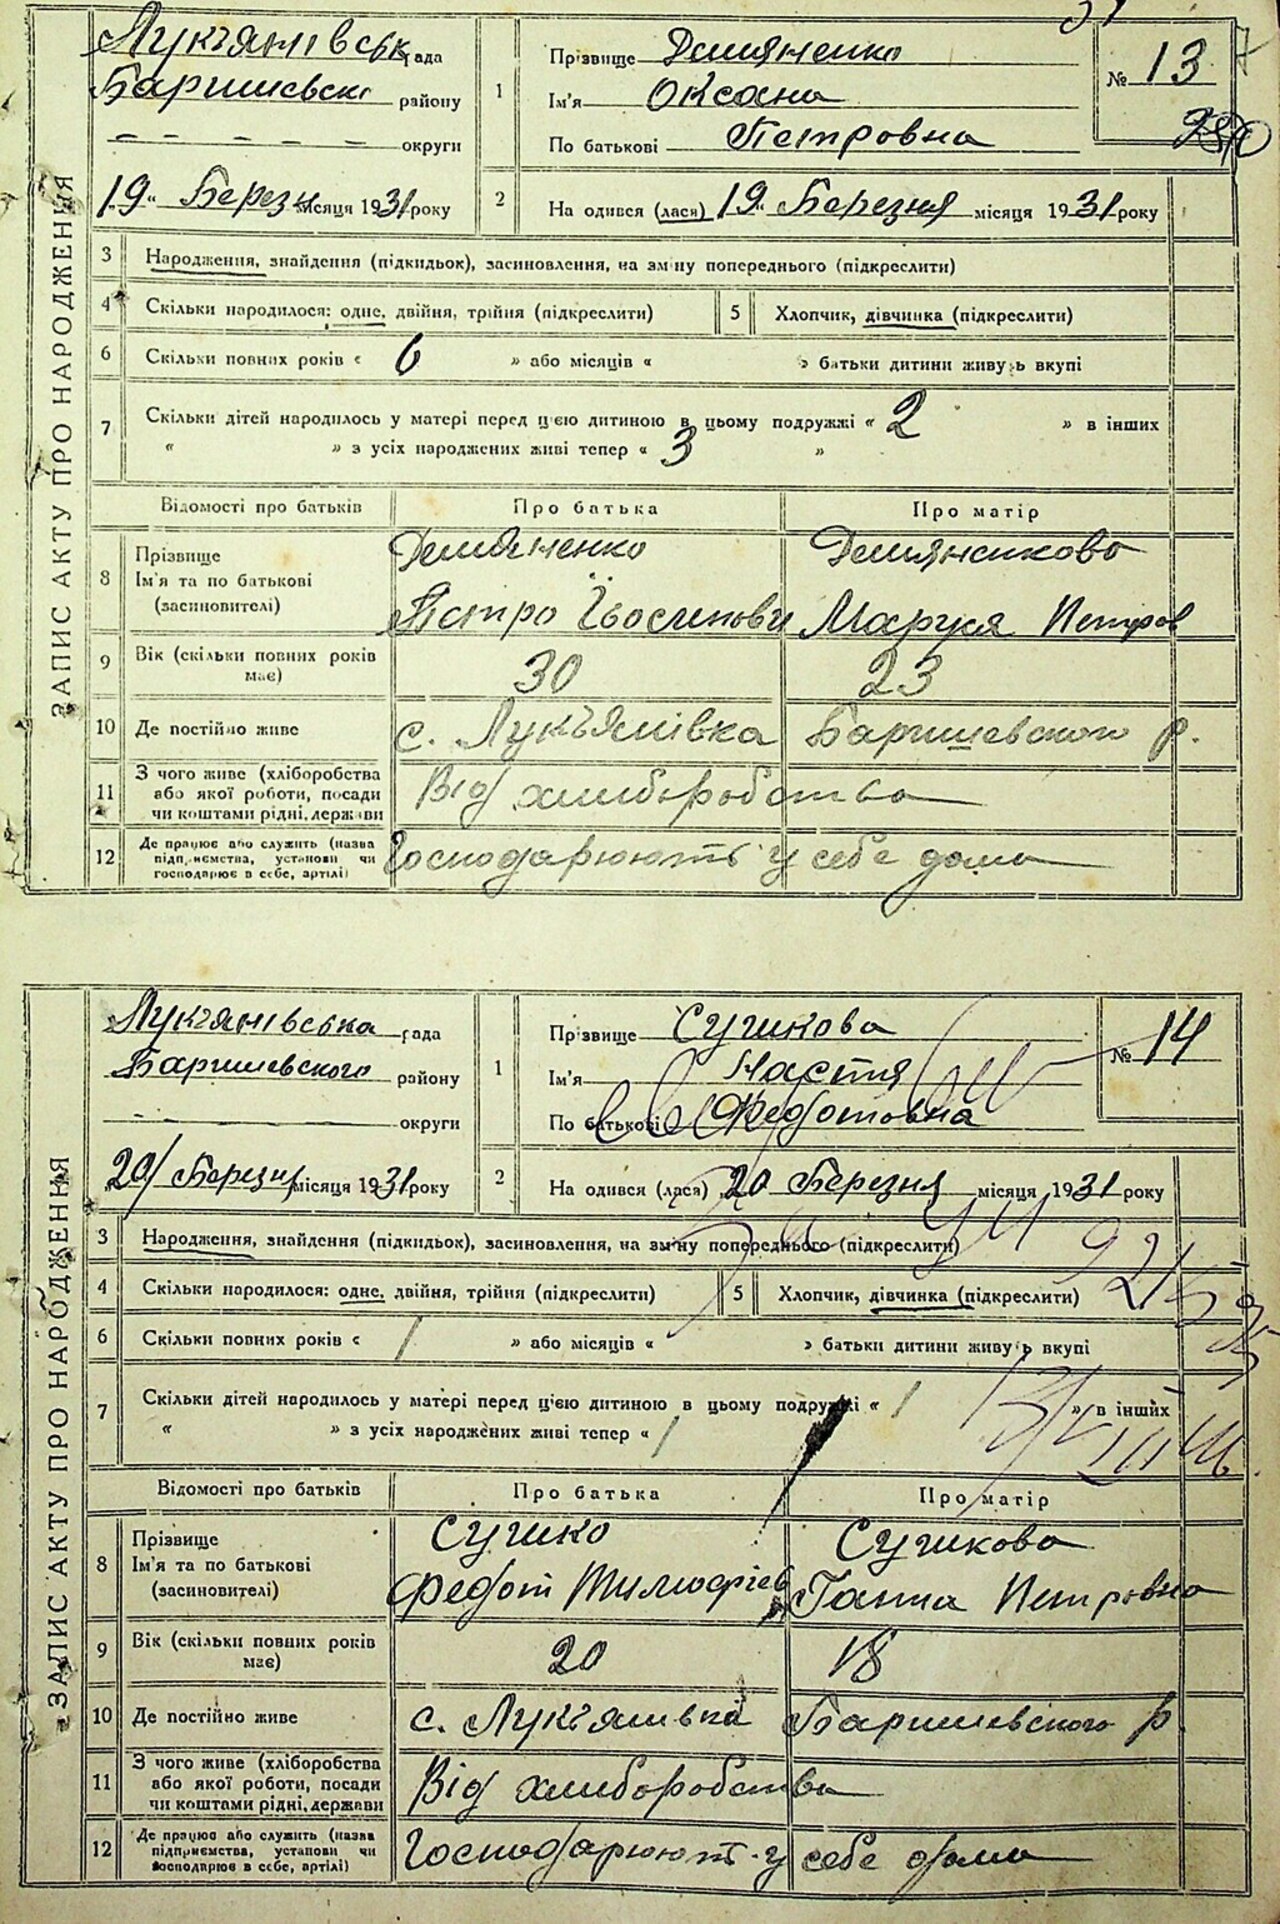 ЗАПИС АКТУ ПРО НАРОДЖЕННЯ
Лукъянівськ рада
Баришевськ району
округи
19 Березн місяця 1931 року
1
Прізвище Демяненко
Ім'я Оксана
По батькові Петровна
№ 13
2
На одився (лася) 19 Березня місяця 1931 року
3 Народження, знайдення (підкидьок), засиновлення, на зміну попереднього (підкреслити)
4 Скільки народилося: одне, двійня, трійня (підкреслити)
5 Хлопчик, дівчинка (підкреслити)
6 Скільки повних років « 6 » або місяців « » батьки дитини живуть вкупі
7 Скільки дітей народилось у матері перед цією дитиною в цьому подружжі « 2 » в інших
« » з усіх народжених живі тепер « 3 »
Відомості про батьків Про батька Про матір
8 Прізвище Демяненко Демяненкова
Ім'я та по батькові
(засиновителі) Петро Йосипови Маруся Петров
9 Вік (скільки повних років має) 30 23
10 Де постійно живе с. Лукъянівка Баришевского р.
11 З чого живе (хліборобства
або якої роботи, посади
чи коштами рідні, держави Від хлиборобства
12 Де працює або служить (назва
підприємства, установи чи
господарює в себе, артілі) Господарюють у себе дома
ЗАПИС АКТУ ПРО НАРОДЖЕННЯ
Лукъянівська рада
Баришевского району
округи
20 Березня місяця 1931 року
1
Прізвище Сушкова
Ім'я Настя
По батькові Федотовна
№ 14
2
На одився (лася) 20 Березня місяця 1931 року
3 Народження, знайдення (підкидьок), засиновлення, на зміну попереднього (підкреслити)
4 Скільки народилося: одне, двійня, трійня (підкреслити)
5 Хлопчик, дівчинка (підкреслити)
6 Скільки повних років « 1 » або місяців « » батьки дитини живуть вкупі
7 Скільки дітей народилось у матері перед цією дитиною в цьому подружжі « 1 » в інших
« » з усіх народжених живі тепер « 1
Відомості про батьків Про батька Про матір
8 Прізвище Сушко Сушкова
Ім'я та по батькові
(засиновителі) Федот Тимофієв Ганна Петровна
9 Вік (скільки повних років має) 20 18
10 Де постійно живе с. Лукъянивка Баришевского р
11 З чого живе (хліборобства
або якої роботи, посади
чи коштами рідні, держави Від хлиборобства
12 Де працює або служить (назва
підприємства, установи чи
господарює в себе, артілі) Господарюють у себе дома